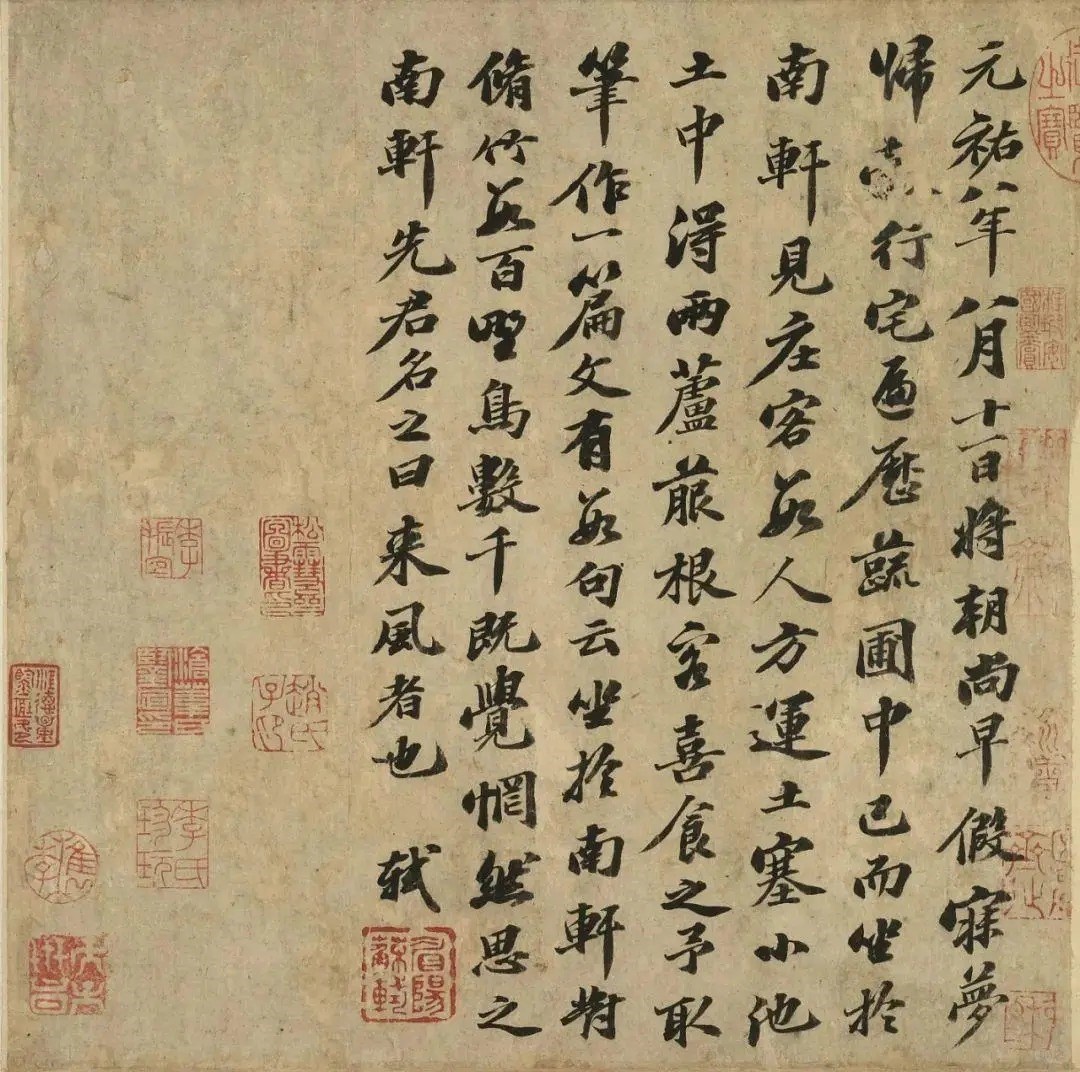 元祐八年八月十一日將朝尚早假寐夢
歸行宅遍歷蔬圃中已而坐於
南軒見庄客數人方運土塞小池
土中得兩蘆菔根客喜食之予取
筆作一篇文有數句云坐於南軒對
脩竹數百野鳥數千既覺惘然思之
南軒先君名之曰來風者也 軾
眉陽蘇軾
松雪齋圖書印